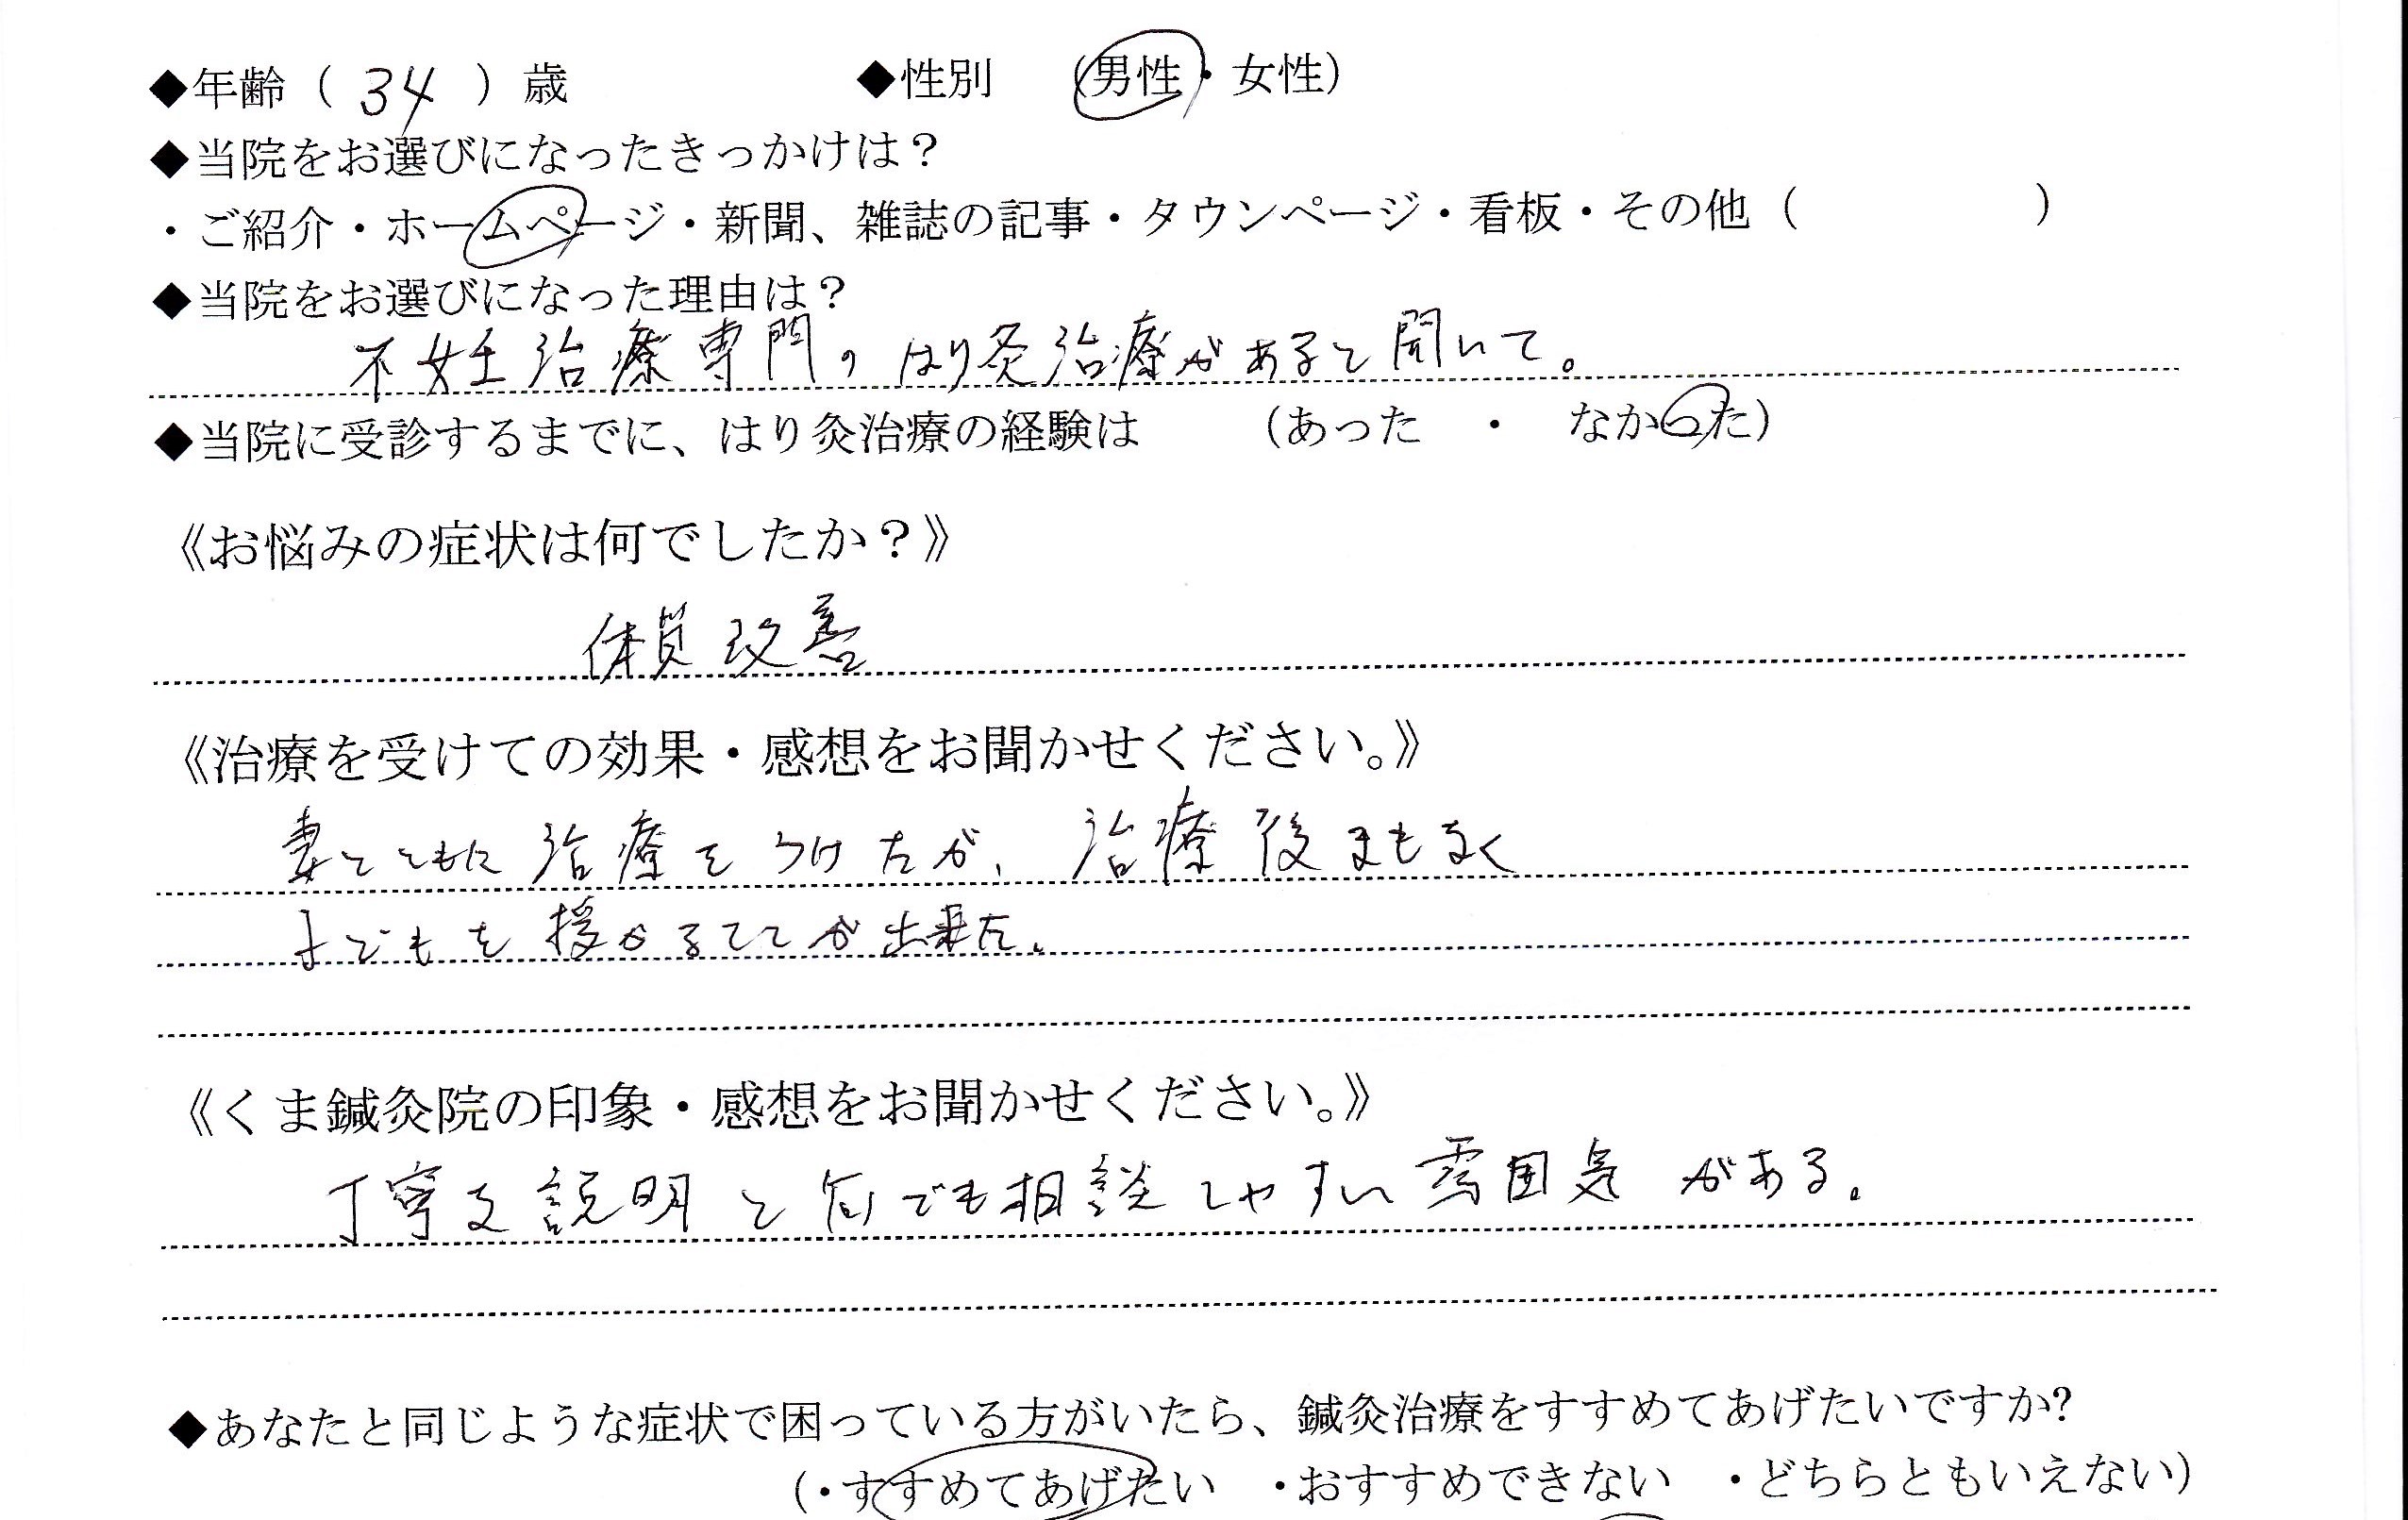 ◆年齢（ 34 ）歳　◆性別　（男性・女性）
◆当院をお選びになったきっかけは？
・ご紹介・ホームページ・新聞、雑誌の記事・タウンページ・看板・その他（　　　）
◆当院をお選びになった理由は？
不妊治療専門のはり灸治療があると聞いて。
◆当院に受診するまでに、はり灸治療の経験は　（あった　・　なかった）
《お悩みの症状は何でしたか？》
体質改善
《治療を受けての効果・感想をお聞かせください。》
妻とともに治療をうけたが、治療後まもなく
子どもを授かることが出来た。
《くま鍼灸院の印象・感想をお聞かせください。》
丁寧な説明と何でも相談しやすい雰囲気がある。
◆あなたと同じような症状で困っている方がいたら、鍼灸治療をすすめてあげたいですか？
（・すすめてあげたい　・おすすめできない　・どちらともいえない）